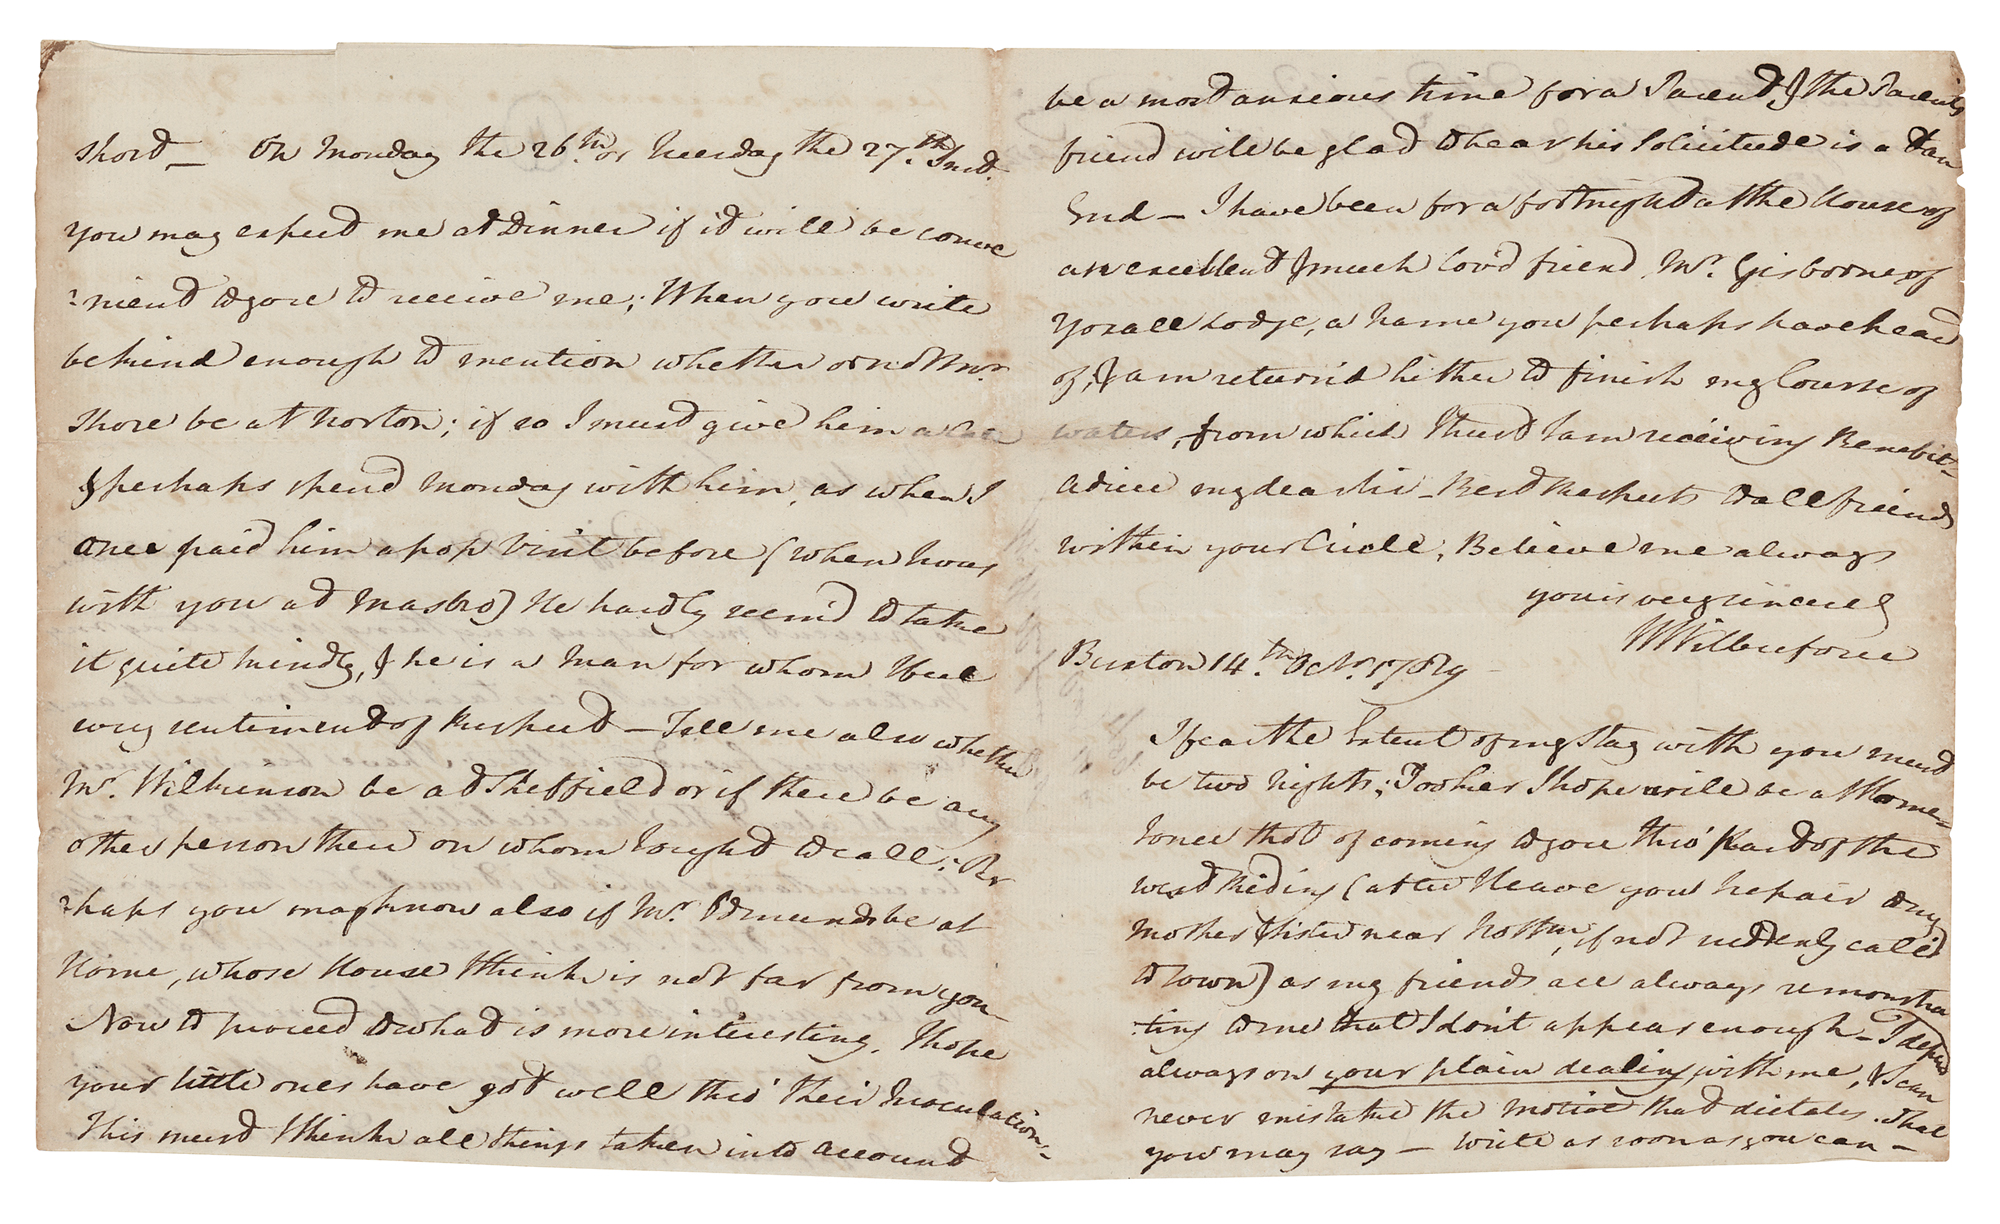 short — On Monday the 26th. or Tuesday the 27th. Inst.
you may expect me at Dinner if it will be conve
-nient to you to receive me; When you write
be kind enough to mention whether or not Mr.
Shore be at Norton; if so I must give him a
& perhaps spend Monday with him, as when I
once paid him a pop Visit before (when I was
with you at Masbro) He hardly seem'd to take
it quite kindly, & he is a Man for whom I feel
every sentiment of Respect — Tell me also whether
Mr. Wilkinson be at Sheffield or if there be any
other person there on whom I ought to call; Per
-haps you may know also if Mr. Edmunds be at
Home, whose House I think is not far from you —
Now to proceed to what is more interesting. I hope
your little ones have got well thro' their Inoculation —
This must I think all things taken into Account
be a most anxious time for a Parent, & the Parents
friend will be glad to hear his Solicitude is at an
End — I have been for a fortnight at the House of
an excellent & much lov'd friend, Mr. Gisborne of
Yoxall Lodge, a name you perhaps have heard
of, & am return'd hither to finish my Course of
waters, from which I trust I am receiving Benefit —
Adieu my dear Sir — Best Respects to all friends
within your Circle; Believe me always
yours very sincerely
W Wilberforce
Buxton 14th. Octr. 1789 —
I fear the Extent of my Stay with you must
be two nights; Tooker I hope will be at Home —
I once tho't of coming to you thro' Part of the
West Riding (after I leave you I repair to my
Mother & Sister near Nottm, if not suddenly called
to Town) as my friends are always remonstra
-ting to me that I don't appear enough — I depend
always on your plain dealing with me, & I can
never mistake the motive that dictates what
you may say — Write as soon as you can —